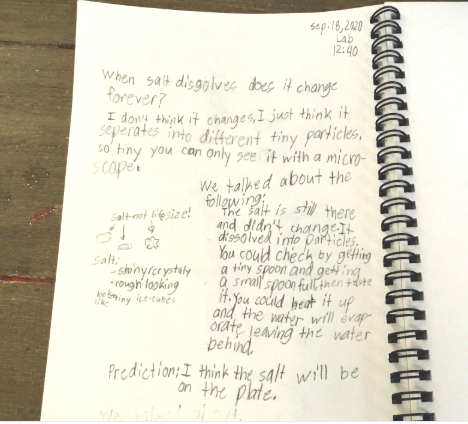 sep. 18, 2020
Lab
12:40
When salt disgolves does it change
forever?
I don't think it changes, I just think it
seperates into different tiny particles.
so tiny you can only see it with a micro-
scope.
We talked about the
following:
The salt is still there
and didn't change. It
dissolved into particles.
You could check by getting
a tiny spoon and getting
a small spoonfull, then taste
it. You could heat it up
and the water will evap-
orate, leaving the water
behind.
salt-not lifesize!
Salt:
-shiny/crystaly
-rough looking
like tiny ice-cubes
Prediction: I think the salt will be
on the plate.
We talked about